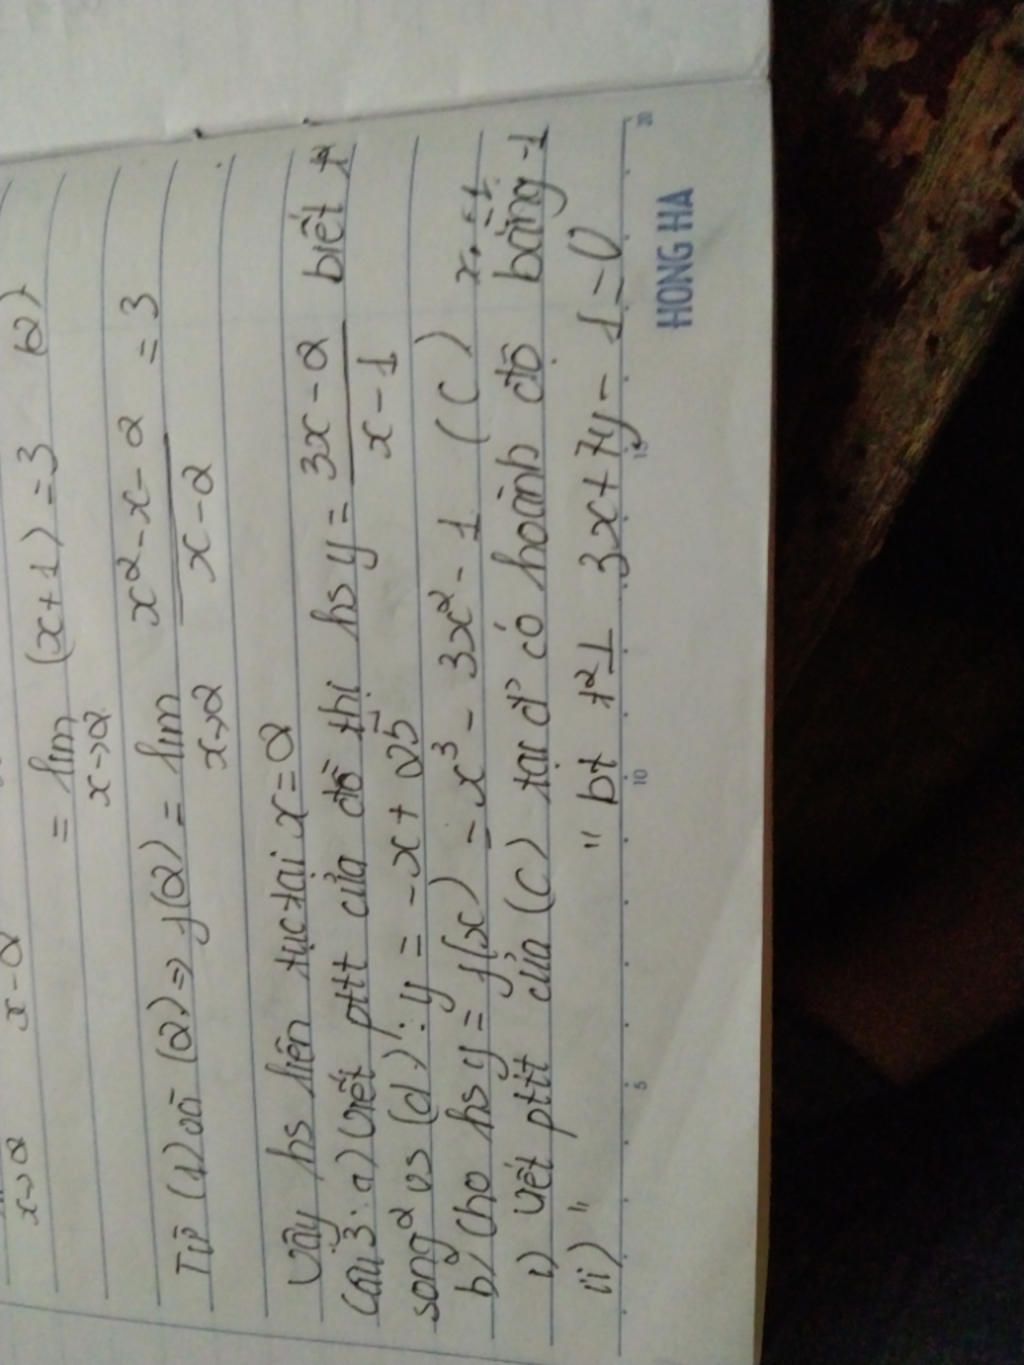 x→2 x-2
= lim (x+1) = 3 (2)
x→2
Từ (1) và (2) => f(2) = lim x² - x - 2 = 3
x→2 x - 2
Vậy hs liên tục tại x = 2
Câu 3: a) Viết pttt của đồ thị hs y = 3x - 2 biết t²
x - 1
song² vs (d): y = -x + 25
b, Cho hs y = f(x) = x³ - 3x² - 1 (C)
x₀ = -1
i) Viết pttt của (C) tại đ' có hoành độ bằng -1
ii) " " bt t² ⊥ 3x + 7y - 1 = 0
5 10 15 20
HONG HA